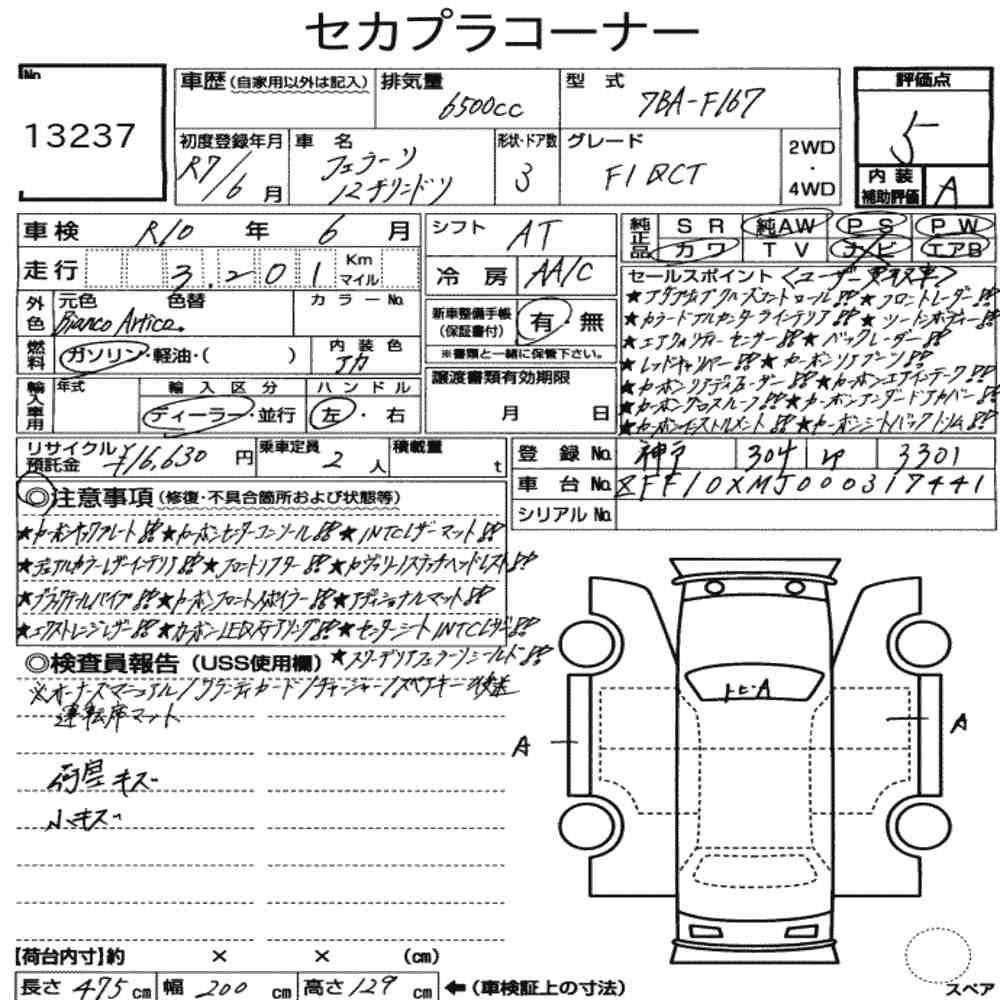 セカプラコーナー
No.
13237
車歴（自家用以外は記入）
排気量 6500cc
型式 7BA-F167
評価点 5
初度登録年月 R7/6月
車名 フェラーリ 12チリンドリ
形状・ドア数 3
グレード F1 DCT
2WD・4WD
内装補助評価 A
車検 R10年 6月
シフト AT
純正品 SR 純AW PS PW
カワ TV ナビ エアB
走行 3,201 Km マイル
冷房 AA/C
外色 元色 色替 カラーNo.
Bianco Artico.
燃料 ガソリン・軽油・( )
内装色 アカ
新車整備手帳（保証書付） 有・無
※書類と一緒に保管下さい。
輸入車用 年式 輸入区分 ディーラー・並行
ハンドル 左・右
譲渡書類有効期限
月 日
セールスポイント <ユーザー買取車>
★アダプティブクルーズコントロール!! ★フロントレーダー!!
★カラードアルカンターラインテリア!! ★ツートンボディー!!
★エアクオリティーセンサー!! ★バックレーダー!!
★レッドキャリパー!! ★カーボンリアブーツ!!
★カーボンリアディフューザー!! ★カーボンエアインテーク!!
★カーボンクロスルーフ!! ★カーボンアンダードアカバー!!
★カーボンインストルメント!! ★カーボンシートバックトリム!!
リサイクル預託金 ¥16,630円
乗車定員 2人
積載量 t
登録No. 神戸 304 ゆ 3301
車台No. ZFF10XMJ000317441
シリアルNo.
◎注意事項（修復・不具合箇所および状態等）
★カーボンキックプレート!! ★カーボンセンターコンソール!! ★INTCレザーマット!!
★デュアルカラーレザーインテリア!! ★フロントリフター!! ★カヴァリーノステッチヘッドレスト!!
★ブラックテールパイプ!! ★カーボンフロントスポイラー!! ★アディショナルマット!!
★エクストレンジレザー!! ★カーボンLEDステアリング!! ★センターシートINTCレザー!!
★スクーデリアフェラーリシールド!!
◎検査員報告（USS使用欄）
※オーナーズマニュアル/ワランティカード/チャージャー/スペアキー後送
運転席マット
荷室キズ
小キズ
トビA
A
A
【荷台内寸】約 × × （cm）
長さ 475cm 幅 200cm 高さ 129cm ←（車検証上の寸法）
スペア